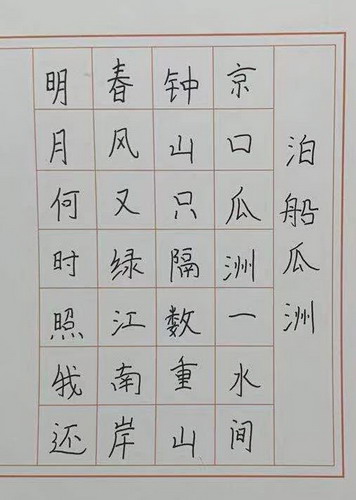 泊船瓜洲
京口瓜洲一水间
钟山只隔数重山
春风又绿江南岸
明月何时照我还